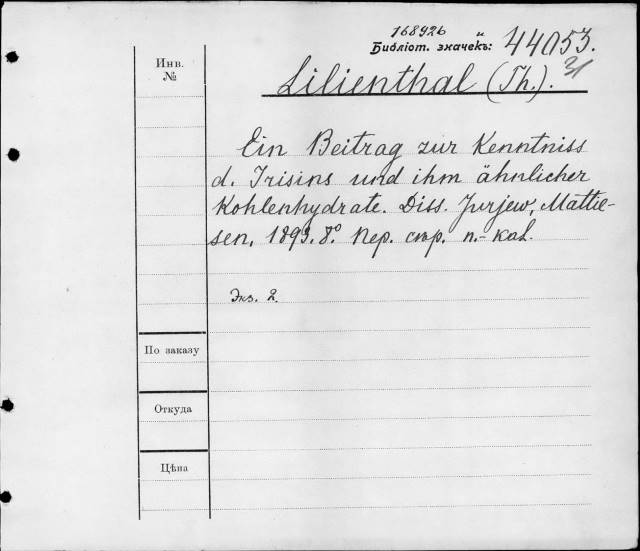 168926
и
Библіот. значекъ: 44053.
31
Инв.
№
Lilienthal (Th.).
Ein Beitrag zur Kenntniss
d. Irisins und ihm ähnlicher
Kohlenhydrate. Diss. Jurjew, Mattie-
sen, 1893. 8º. Пер. сар. п.-кол.
Экз. 2.
По заказу
Откуда
Цѣна